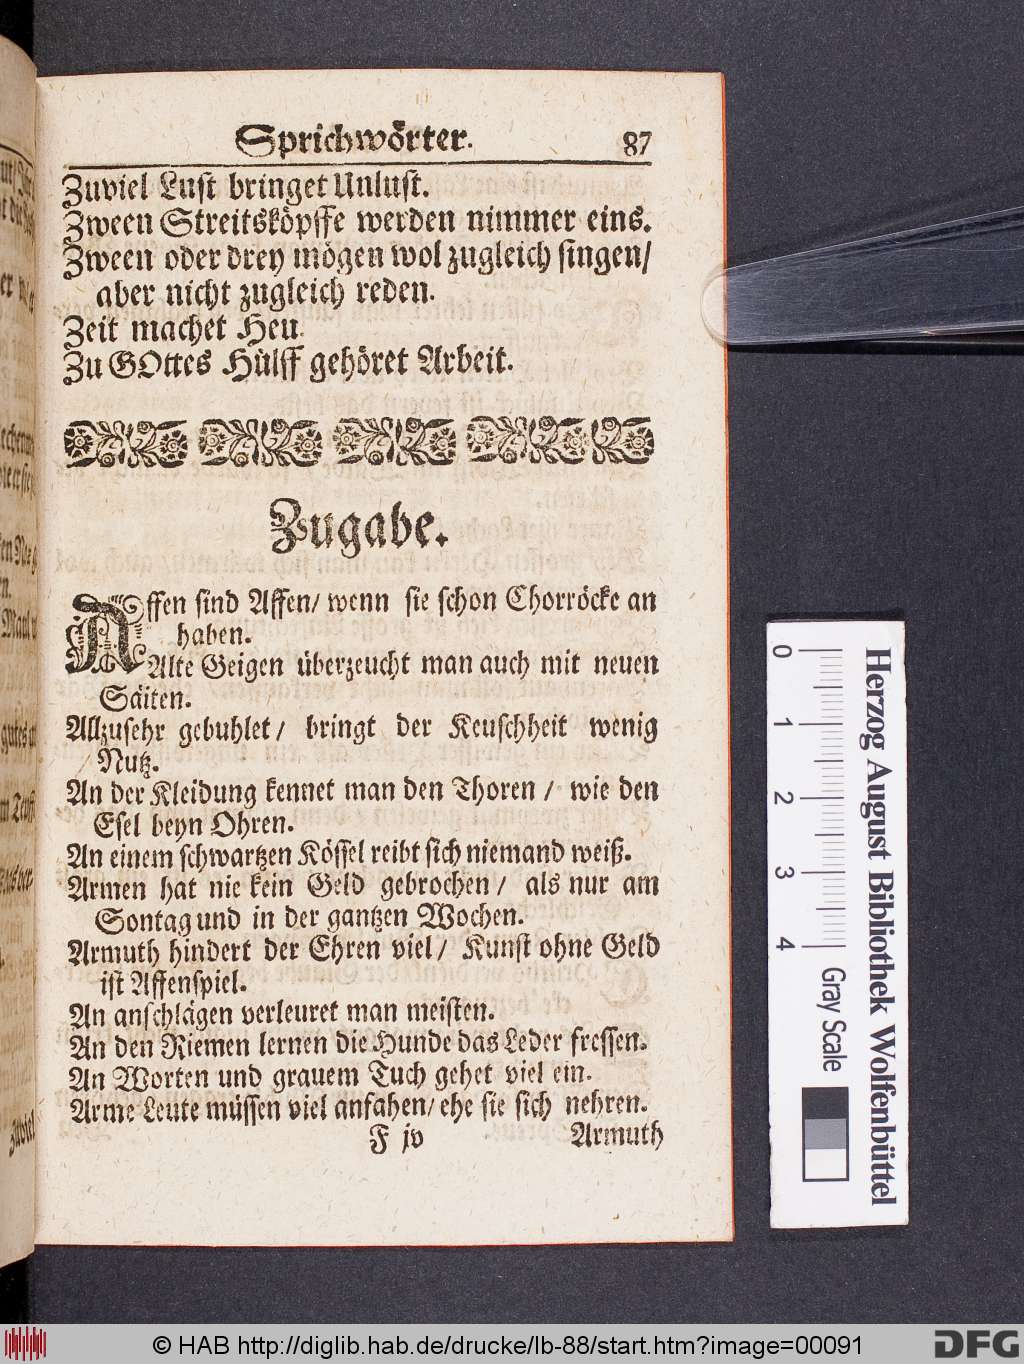 Sprichwörter. 87
Zuviel Lust bringet Unlust.
Zween Streitsköpffe werden nimmer eins.
Zween oder drey mögen wol zugleich singen/
aber nicht zugleich reden.
Zeit machet Heu.
Zu GOttes Hülff gehöret Arbeit.
Zugabe.
Affen sind Affen/ wenn sie schon Chorröcke an
haben.
Alte Geigen überzeucht man auch mit neuen
Säiten.
Allzusehr gebuhlet/ bringt der Keuschheit wenig
Nutz.
An der Kleidung kennet man den Thoren/ wie den
Esel beyn Ohren.
An einem schwartzen Kössel reibt sich niemand weiß.
Armen hat nie kein Geld gebrochen/ als nur am
Sontag und in der gantzen Wochen.
Armuth hindert der Ehren viel/ Kunst ohne Geld
ist Affenspiel.
An anschlägen verleuret man meisten.
An den Riemen lernen die Hunde das Leder fressen.
An Worten und grauem Tuch gehet viel ein.
Arme Leute müssen viel anfahen/ ehe sie sich nehren.
F jv Armuth
Herzog August Bibliothek Wolfenbüttel
0 1 2 3 4 Gray Scale
© HAB http://diglib.hab.de/drucke/lb-88/start.htm?image=00091
DFG